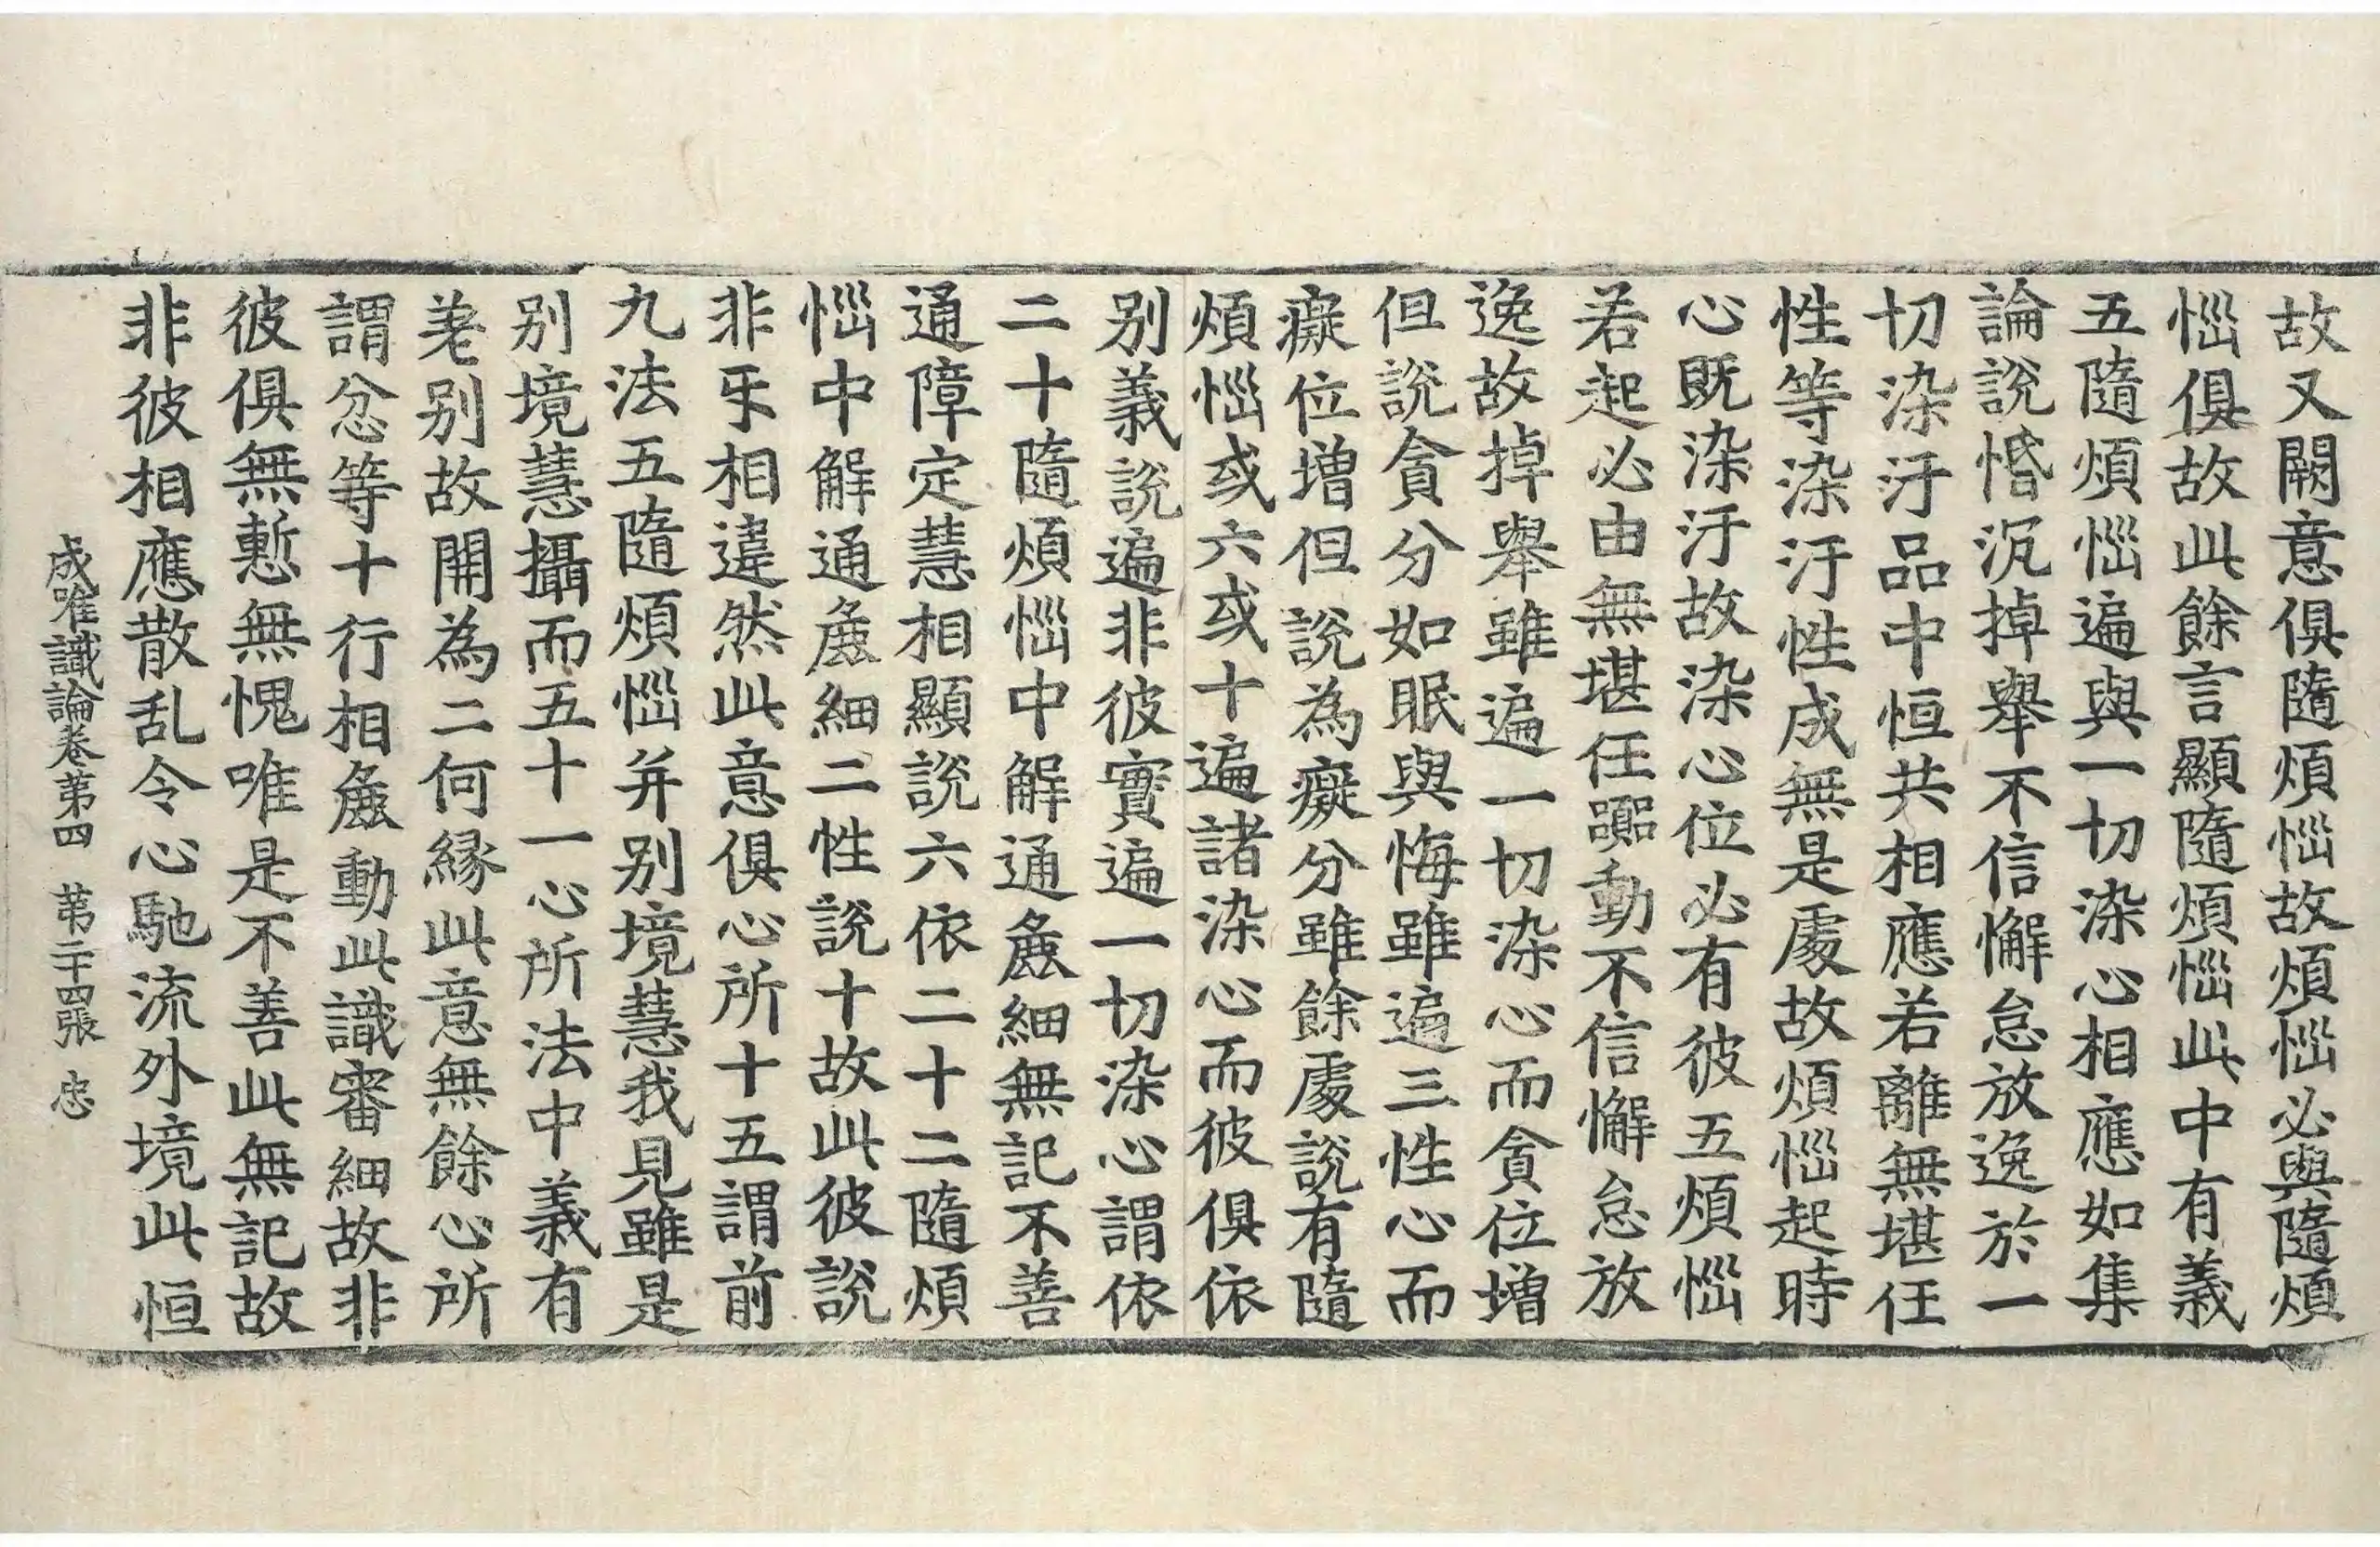 故又闕意俱隨煩惱故煩惱必與隨煩
惱俱故此餘言顯隨煩惱此中有義
五隨煩惱遍與一切染心相應如集
論說惛沉掉舉不信懈怠放逸於一
切染汙品中恒共相應若離無堪任
性等染汙性成無是處故煩惱起時
心既染汙故染心位必有彼五煩惱
若起必由無堪任躁動不信懈怠放
逸故掉舉雖遍一切染心而貪位增
但說貪分如眠與悔雖遍三性心而
癡位增但說為癡分雖餘處說有隨
煩惱或六或十遍諸染心而彼俱依
別義說遍非彼實遍一切染心謂依
二十隨煩惱中解通麁細無記不善
通障定慧相顯說六依二十二隨煩
惱中解通麁細二性說十故此彼說
非乐相違然此意俱心所十五謂前
九法五隨煩惱并別境慧我見雖是
別境慧攝而五十一心所法中義有
差別故開為二何緣此意無餘心所
謂忿等十行相麁動此識審細故非
彼俱無慙無愧唯是不善此無記故
非彼相應散乱令心馳流外境此恒
成唯識論卷第四 第二十四張 忠